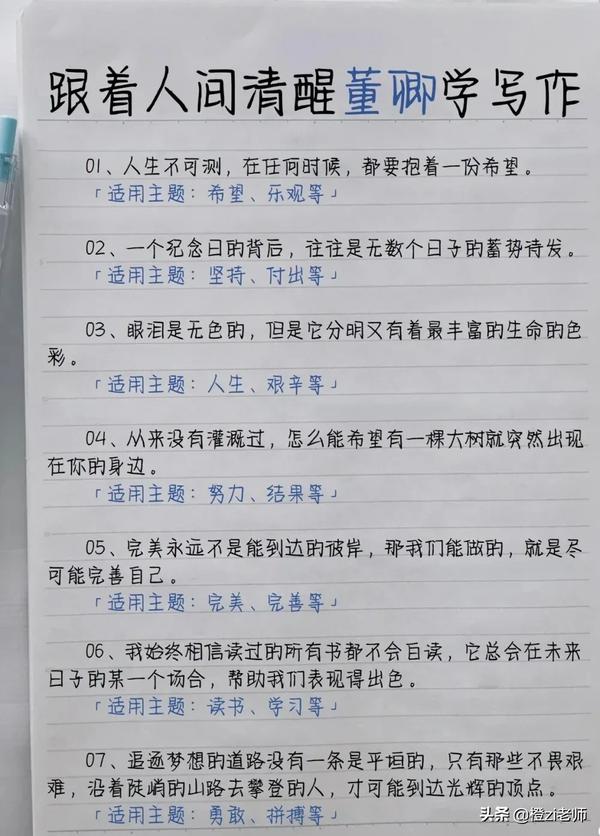 跟着人间清醒董卿学写作
01、人生不可测，在任何时候，都要抱着一份希望。
「适用主题：希望、乐观等」
02、一个纪念日的背后，往往是无数个日子的蓄势待发。
「适用主题：坚持、付出等」
03、眼泪是无色的，但是它分明又有着最丰富的生命的色
彩。
「适用主题：人生、艰辛等」
04、从来没有灌溉过，怎么能希望有一棵大树就突然出现
在你的身边。
「适用主题：努力、结果等」
05、完美永远不是能到达的彼岸，那我们能做的，就是尽
可能完善自己。
「适用主题：完美、完善等」
06、我始终相信读过的所有书都不会白读，它总会在未来
日子的某一个场合，帮助我们表现得出色。
「适用主题：读书、学习等」
07、追逐梦想的道路没有一条是平坦的，只有那些不畏艰
难，沿着陡峭的山路去攀登的人，才可能到达光辉的顶点。
「适用主题：勇敢、拼搏等」
头条 @橙zi老师